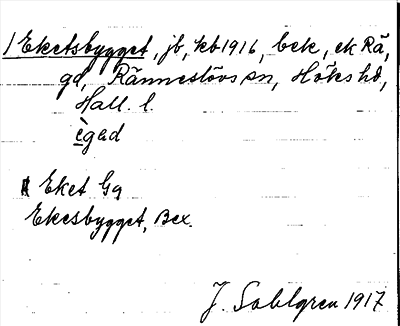 1 Eketsbygget, jb, kb 1916, bek, ek Rä,
gd, Ränneslövs sn, Höks hd,
Hall. l.
ègad
Eket Gg
Ekesbygget, Bex.
J. Sahlgren 1917